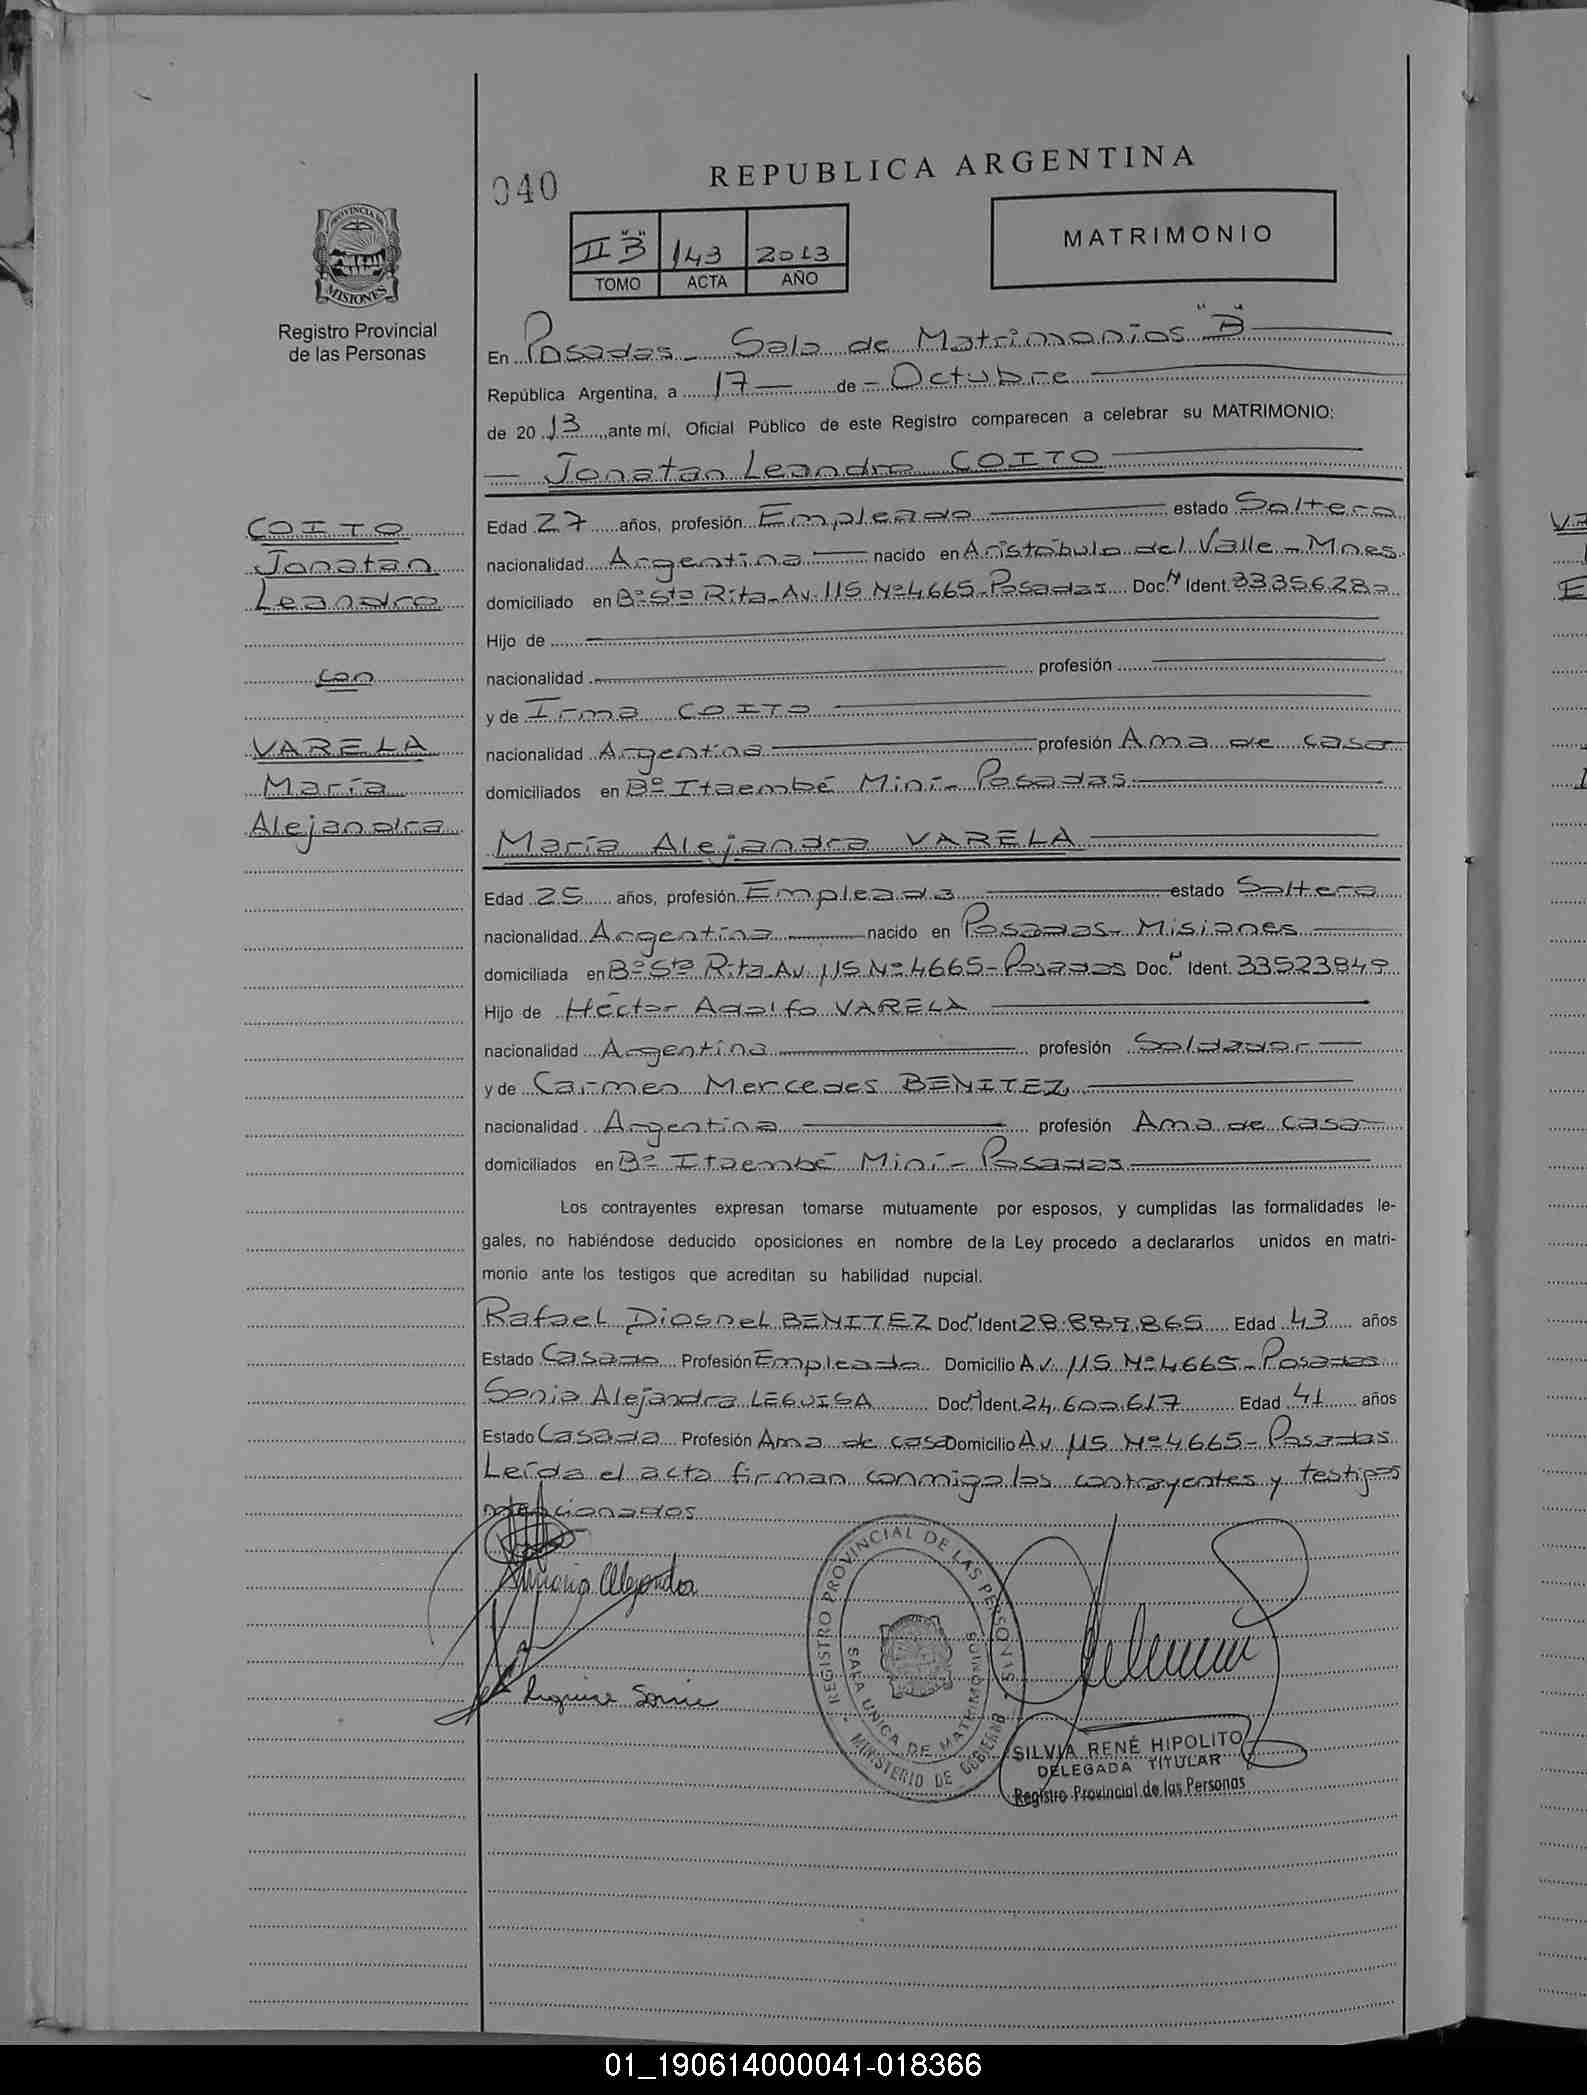 040
REPUBLICA ARGENTINA
PROVINCIA DE
MISIONES
Registro Provincial
de las Personas
II "B" 143 2013
TOMO ACTA AÑO
MATRIMONIO
En Posadas - Sala de Matrimonios "B"
República Argentina, a 17 de - Octubre
de 2013, ante mí, Oficial Público de este Registro comparecen a celebrar su MATRIMONIO:
Jonatan Leandro COITO
COITO
Jonatan
Leandro
con
VARELA
María
Alejandra
Edad 27 años, profesión Empleado estado Soltero
nacionalidad Argentina nacido en Aristóbulo del Valle - Mnes
domiciliado en Bº Sta Rita - Av. 115 Nº 4665 - Posadas Doc. N Ident. 33356282
Hijo de
nacionalidad profesión
y de Irma COITO
nacionalidad Argentina profesión Ama de casa
domiciliados en Bº Itaembé Miní - Posadas
María Alejandra VARELA
Edad 25 años, profesión Empleada estado Soltera
nacionalidad Argentina nacido en Posadas - Misiones
domiciliada en Bº Sta Rita Av. 115 Nº 4665 - Posadas Doc. N Ident. 33523849
Hijo de Héctor Adolfo VARELA
nacionalidad Argentina profesión Soldador
y de Carmen Mercedes BENITEZ
nacionalidad Argentina profesión Ama de casa
domiciliados en Bº Itaembé Miní - Posadas
Los contrayentes expresan tomarse mutuamente por esposos, y cumplidas las formalidades le-
gales, no habiéndose deducido oposiciones en nombre de la Ley procedo a declararlos unidos en matri-
monio ante los testigos que acreditan su habilidad nupcial.
Rafael Diosnel BENITEZ Doc. N Ident 28.889.865 Edad 43 años
Estado Casado Profesión Empleado Domicilio Av. 115 Nº 4665 - Posadas
Sonia Alejandra LEGUISA Doc. N Ident. 24.600.617 Edad 41 años
Estado Casada Profesión Ama de casa Domicilio Av. 115 Nº 4665 - Posadas
Leída el acta firman conmigo los contrayentes y testigos
mencionados
Alejandra
Leguisa Sonia
REGISTRO PROVINCIAL DE LAS PERSONAS
SALA UNICA DE MATRIMONIOS
MINISTERIO DE GOBIERNO
SILVIA RENÉ HIPOLITO
DELEGADA TITULAR
Registro Provincial de las Personas
01_190614000041-018366